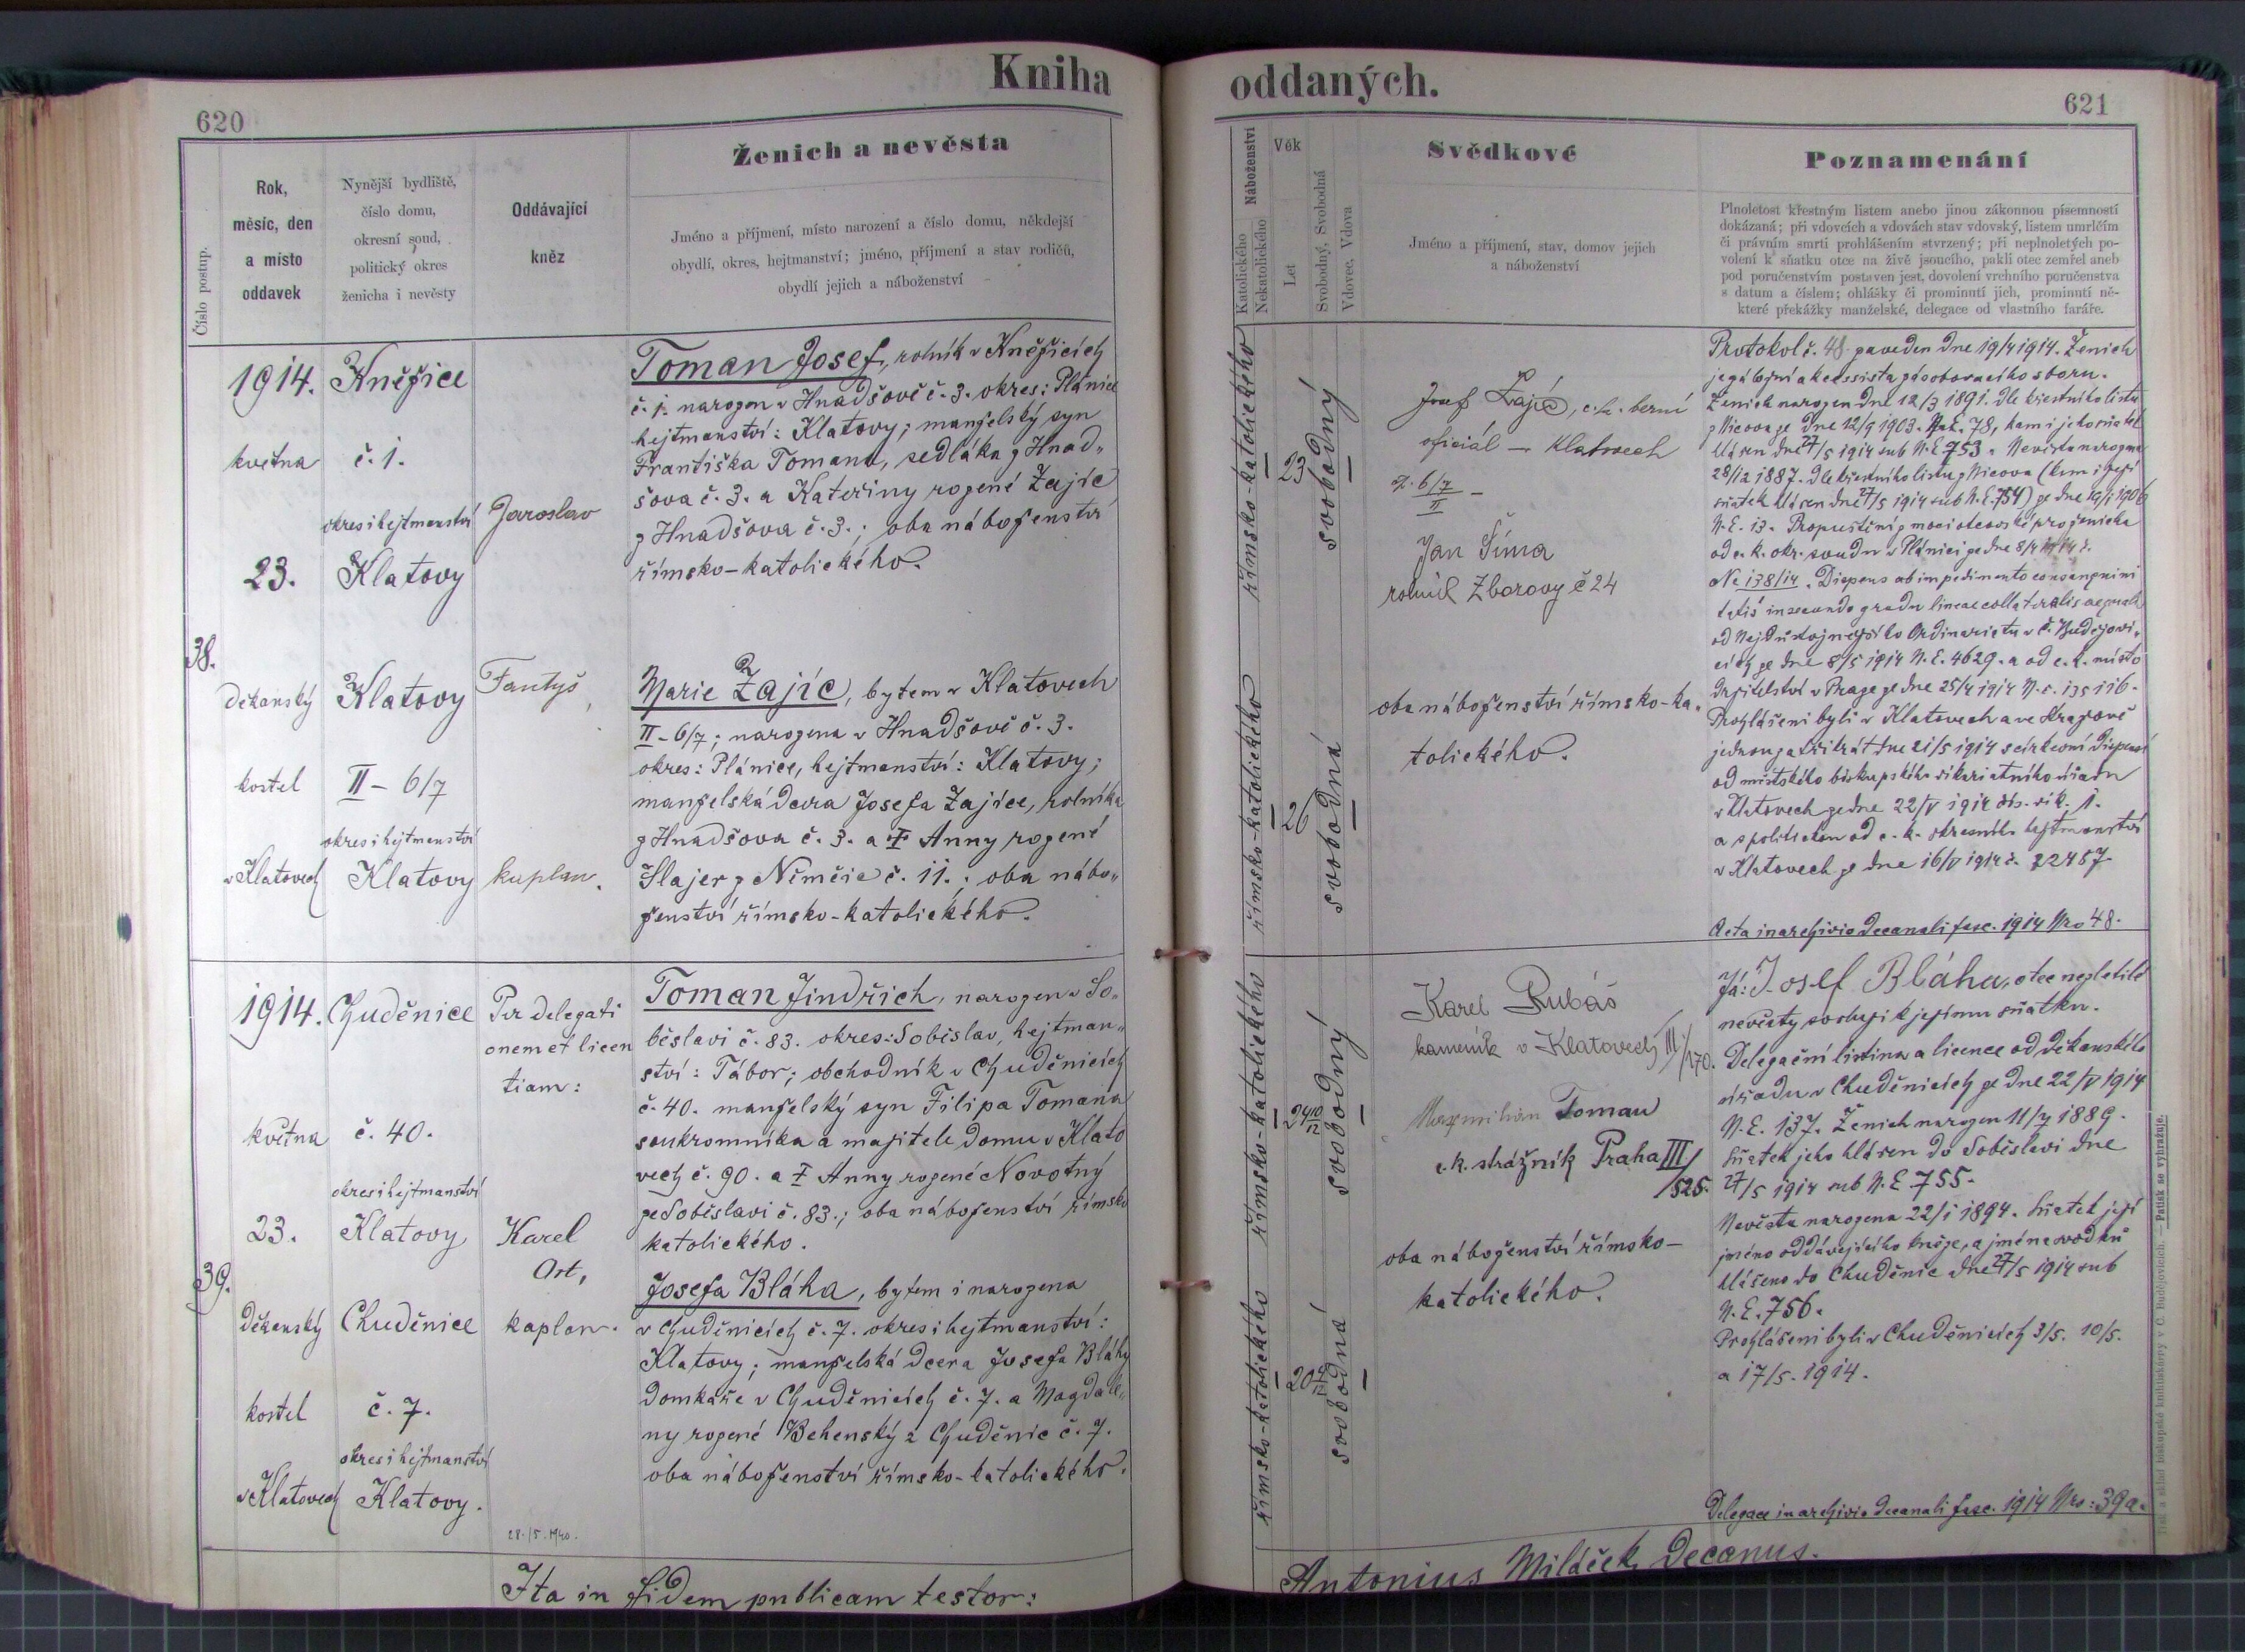 Kniha oddaných.
620
621
Číslo postup.
Rok,
měsíc, den
a místo
oddavek
Nynější bydliště,
číslo domu,
okresní soud,
politický okres
ženicha i nevěsty
Oddávající
kněz
Ženich a nevěsta
Jméno a příjmení, místo narození a číslo domu, někdejší
obydlí, okres, hejtmanství; jméno, příjmení a stav rodičů,
obydlí jejich a náboženství
Náboženství
Katolického
Nekatolického
Věk
Let
Svobodný, Svobodná
Vdovec, Vdova
Svědkové
Jméno a příjmení, stav, domov jejich
a náboženství
Poznamenání
Plnoletost křestným listem anebo jinou zákonnou písemností
dokázaná; při vdovcích a vdovách stav vdovský, listem umrlčím
či právním smrti prohlášením stvrzený; při neplnoletých po-
volení k sňatku otce na živě jsoucího, pakli otec zemřel aneb
pod poručenstvím postaven jest, dovolení vrchního poručenstva
s datum a číslem; ohlášky či prominutí jich, prominutí ně-
které překážky manželské, delegace od vlastního faráře.
38.
1914.
května
23.
děkanský
kostel
v Klatovech
Kněžice
č. 1.
okres i hejtmanství
Klatovy
Klatovy
II - 6/7
okres i hejtmanství
Klatovy
Jaroslav
Fantyš,
kaplan.
Toman Josef, rolník v Kněžicích
č. 1. narozen v Hnadšově č. 3. okres: Plánice
hejtmanství: Klatovy; manželský syn
Františka Tomana, sedláka z Hnad„
šova č. 3. a Kateřiny rozené Zajíc
z Hnadšova č. 3.; oba náboženství
římsko-katolického.
Marie Zajíc, bytem v Klatovech
II - 6/7; narozena v Hnadšově č. 3.
okres: Plánice, hejtmanství: Klatovy;
manželská dcera Josefa Zajíce, rolníka
z Hnadšova č. 3. a † Anny rozené
Šlajer z Němčic č. 11.; oba nábo„
ženství římsko-katolického.
římsko-katolického
římsko-katolického
23
26
svobodný
svobodná
Josef Zajíc, c. k. berní
oficiál — Klatovech
č. 6/7 —
II
Jan Šíma
rolník Zborovy č 24
oba náboženství římsko-ka„
tolického.
Protokol č. 48. zaveden dne 19/4 1914. Ženich
je záložní akcessista zásobovacího sboru.
Ženich narozen dne 12/3 1891. dle křestního listu
z Nicova ze dne 12/9 1903. N. E. 78, kam i jeho sňatek
hlášen dne 27/5 1914 sub N. E. 753. Nevěsta narozena
28/12 1887. dle křestního listu z Nicova (kam i její
sňatek hlášen dne 27/5 1914 sub N. E. 754) ze dne 19/1 1906
N. E. 13. Propuštění z moci otcovské pro ženicha
od c. k. okr. soudu v Plánici ze dne 8/4 1914 č.
Nc 138/14. Dispens ab impedimento consanguini
tatis in secundo gradu lineae collateralis aequali
od Nejdůstojnějšího Ordinariatu v Č. Budějovi„
cích ze dne 8/5 1914 N. E. 4629. a od c. k. místo
držitelství v Praze ze dne 25/4 1914 N. c. 135 116.
Prohlášeni byli v Klatovech a ve
jednou za třikrát dne 21/5 1914 s církevní dispensí
od městského biskupského vikariatního úřadu
v Klatovech ze dne 22/V 1914 čís. vik. 1.
a s politickou od c. k. okresního hejtmanství
v Klatovech ze dne 16/V 1914 č. 22487.
Acta in archivio decanali fasc. 1914 Nro 48.
39.
1914.
května
23.
děkanský
kostel
v Klatovech
Chuděnice
č. 40.
okres i hejtmanství
Klatovy
Chuděnice
č. 7.
okres i hejtmanství
Klatovy.
Per delegati
onem et licen
tiam:
Karel
Ort,
kaplan.
28./5. 1940.
Toman Jindřich, narozen v So„
běslavi č. 83. okres: Soběslav, hejtman„
ství: Tábor; obchodník v Chuděnicích
č. 40. manželský syn Filipa Tomana
soukromníka a majitele domu v Klato
vech č. 90. a † Anny rozené Novotný
ze Soběslavi č. 83.; oba náboženství římsko
katolického.
Josefa Bláha, bytem i narozena
v Chuděnicích č. 7. okres i hejtmanství:
Klatovy; manželská dcera Josefa Bláhy
domkaře v Chuděnicích č. 7. a Magdale„
ny rozené Behenský z Chuděnic č. 7.
oba náboženství římsko-katolického.
římsko-katolického
římsko-katolického
24 10/12
20 4/12
svobodný
svobodná
Karel Rubáš
kameník v Klatovech III/170.
Maxmilián Toman
c. k. strážník Praha III/
525.
oba náboženství římsko-
katolického.
Já: Josef Bláha, otec nezletilé
nevěsty svoluji k jejímu sňatku.
Delegační listina a licence od děkanského
úřadu v Chuděnicích ze dne 22/V 1914
N. E. 137. Ženich narozen 11/7 1889.
Sňatek jeho hlášen do Soběslavi dne
27/5 1914 sub N. E. 755.
Nevěsta narozena 22/1 1894. Sňatek její
jméno oddávajícího kněze, a jména svědků
hlášeno do Chuděnic dne 27/5 1914 sub
N. E. 756.
Prohlášeni byli v Chuděnicích 3/5. 10/5.
a 17/5. 1914.
Delegace in archivio decanali fasc. 1914 Nro: 39a.
Ita in fidem publicam testor:
Antonius Miláček, Decanus.
Tisk a sklad biskupské knihtiskárny v Č. Budějovicích. — Patisk se vyhražuje.